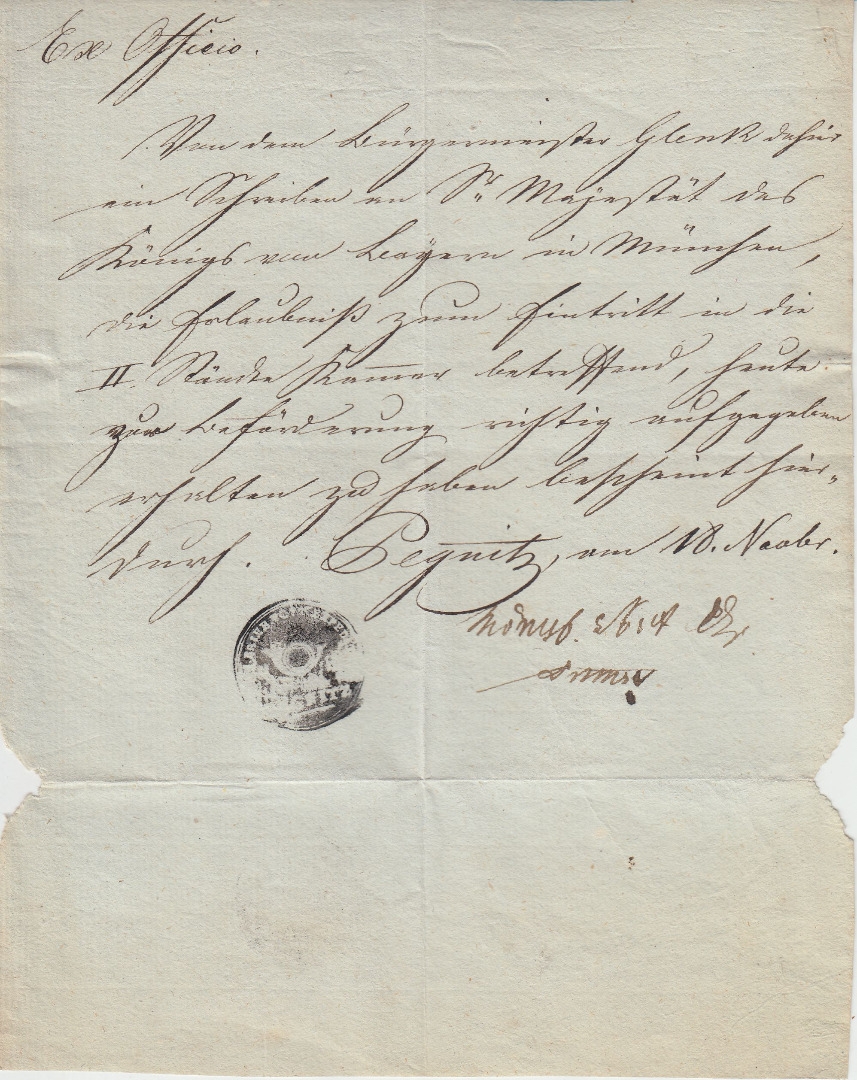 Ex Officio.
Von dem Bürgermeister Glenk dahier
ein Schreiben an Sr. Majestät des
Königs von Bayern in München,
die Erlaubniß zum Eintritt in die
II. Stände Kam̅er betreffend, heute
zur Beförderung richtig aufgegeben
erhalten zu haben bescheint hier-
durch. Pegnitz, am 18. Novbr.